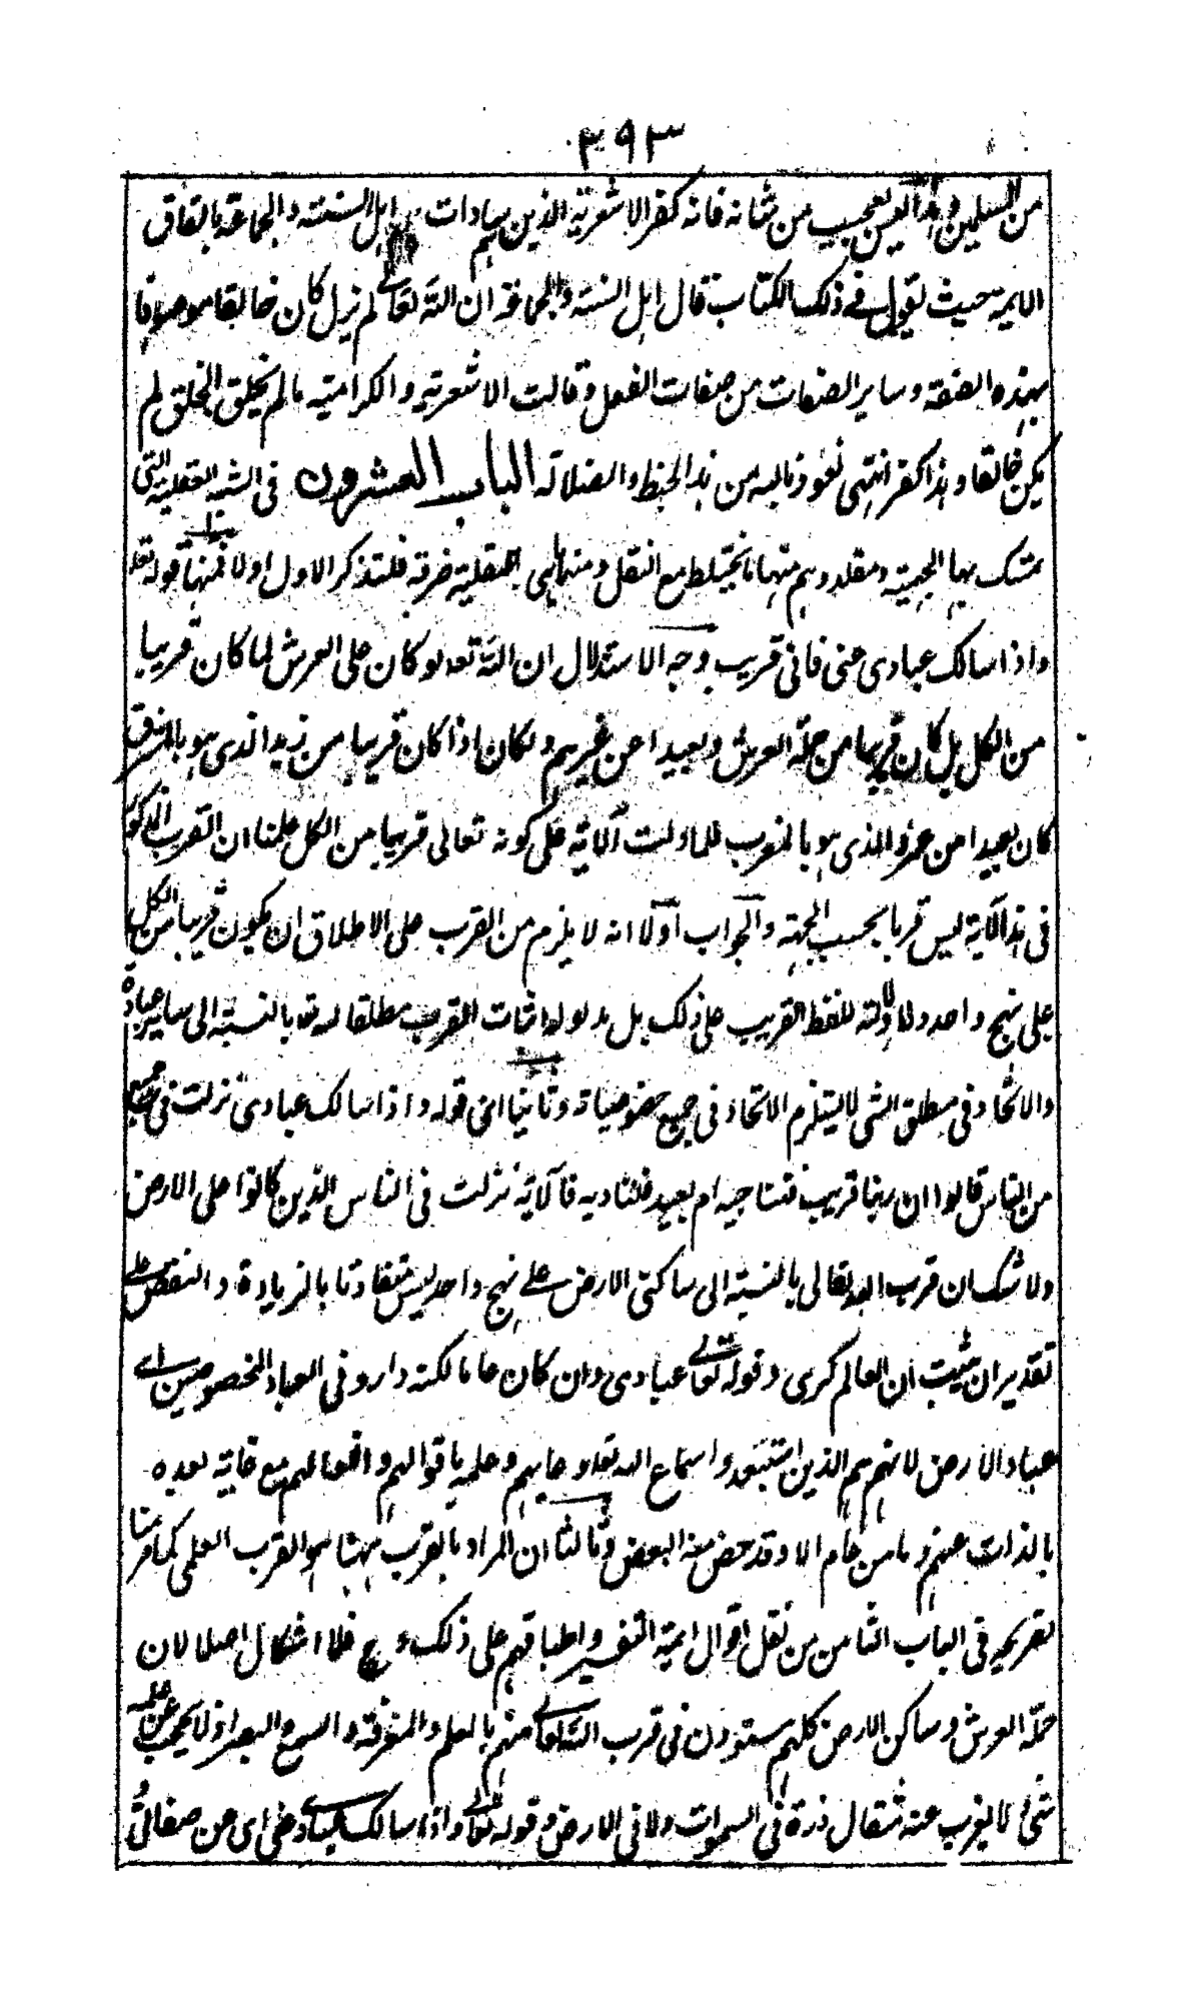 ٢٩٣
من المسلمين وهذا ليس بعجيب من شانه فانه كفر الاشعرية الذين هم سادات اهل السنة والجماعة باتفاق
الايمة حيث يقول في ذلك الكتاب قال اهل السنة والجماعة ان الله تعالى لم يزل كان خالقا موصوفا
بهذه الصفة وساير الصفات من صفات الفعل وقالت الاشعرية والكرامية مالم يخلق الخلق لم
يكن خالقا وهذا كفر انتهى نعوذ بالله من هذا الخبط والضلالة الباب العشرون في الشبه العقلية التي
تمسك بها الجهمية ومقلدوهم منها ما يختلط مع النقل ومنها هي عقلية صرفة فلنذكر الاول اولا فمنها قوله تعا
واذا سالك عبادى عنى فانى قريب وجه الاستدلال ان الله تعه لو كان على العرش لما كان قريبا
من الكل بل كان قريبا من حملة العرش وبعيدا عن غيرهم ولكان اذا كان قريبا من زيد الذى هو بالمشرق
كان بعيدا من عمرو الذى هو بالمغرب فلما دلت الآية على كونه تعالى قريبا من الكل علمنا ان القرب المذكور
في هذا الآية ليس قربا بحسب الجهة والجواب اولا انه لا يلزم من القرب على الاطلاق ان يكون قريبا من الكل
على نهج واحد ولا دلالة للفظ القريب على ذلك بل مدلوله اثبات القرب مطلقا له تعا بالنسبة الى ساير عباده
والاتحاد في مطلق الشى لا يستلزم الاتحاد في جميع خصوصياته وثانيا انى قوله واذا سالك عبادى نزلت في جمع
من الناس قالوا ان ربنا قريب فنناجيه ام بعيد فلنناديه فالآية نزلت في الناس الذين كانوا على الارض
ولا شك ان قرب الله تعالى بالنسبة الى ساكنى الارض على نهج واحد ليس متفاوتا بالزيادة والنقص على
تقدير ان يثبت ان العالم كرى وقوله تعالى عبادى وان كان عاما لكنه وارد في العباد المخصوصين اى
عباد الارض لانهم هم الذين استبعدوا سماع الله تعا دعاءهم وعلمه باقوالهم وافعالهم مع غاية بعده
بالذات عنهم وما من عام الا وقد خص منه البعض وثالثا ان المراد بالقرب ههنا هو القرب العلمى كما مر منا
تقريره في الباب الثامن من نقل اقوال ايمة التفسير واطباقهم على ذلك وح فلا اشكال اصلا لان
حملة العرش وساكن الارض كلهم مستوون في قرب الله تعالى منهم بالعلم والمعرفة والسمع والبصر اذ لا يحجب عن علمه
شى لا يعزب عنه مثقال ذرة في السموات ولا في الارض وقوله تعالى واذا سالك عبادى عنى اى عن صفاتى